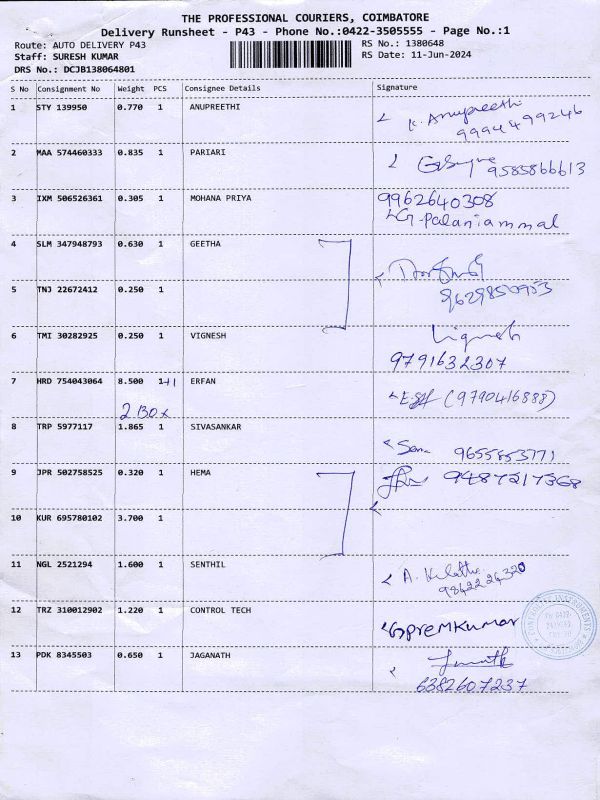 THE PROFESSIONAL COURIERS, COIMBATORE
Delivery Runsheet - P43 - Phone No.:0422-3505555 - Page No.:1
Route: AUTO DELIVERY P43 RS No.: 1380648
Staff: SURESH KUMAR RS Date: 11-Jun-2024
DRS No.: DCJB138064801
S No Consignment No Weight PCS Consignee Details Signature
1 STY 139950 0.770 1 ANUPREETHI K. Anupreethi
9994499246
2 MAA 574460333 0.835 1 PARIARI
9585866613
3 IXM 506526361 0.305 1 MOHANA PRIYA 9962640308
G. Palaniammal
4 SLM 347948793 0.630 1 GEETHA
5 TNJ 22672412 0.250 1
6 TMI 30282925 0.250 1 VIGNESH Vignesh
9791632307
7 HRD 754043064 8.500 1+1 ERFAN (9790416888)
2 BOX
8 TRP 5977117 1.865 1 SIVASANKAR
9655853771
9 JPR 502758525 0.320 1 HEMA 9487217368
10 KUR 695780102 3.700 1
11 NGL 2521294 1.600 1 SENTHIL
12 TRZ 310012902 1.220 1 CONTROL TECH G. PremKumar
13 PDK 8345503 0.650 1 JAGANATH
6382607237